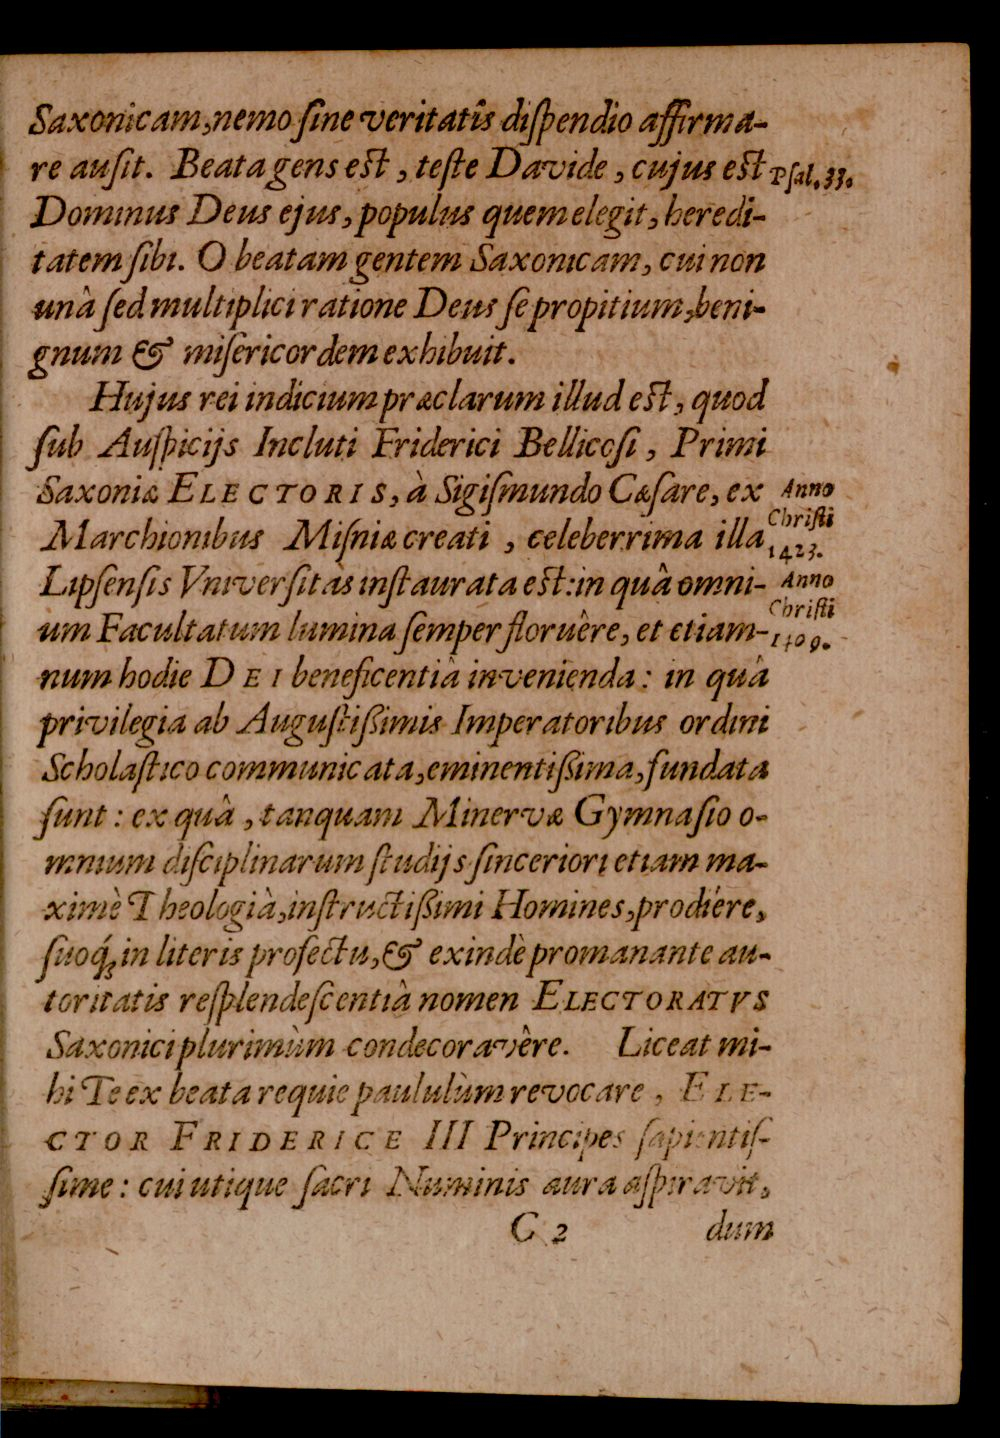 Saxonicam, nemo ſine veritatîs diſpendio affirma-
re auſit. Beata gens eſt, teſte Davide, cujus eſt
Pſal. 33.
Dominus Deus ejus, populus quem elegit, heredi-
tatem ſibi. O beatam gentem Saxonicam, cui non
unâ ſed multiplici ratione Deus ſe propitium, beni-
gnum & miſericordem exhibuit.
Hujus rei indicium præclarum illud eſt, quod
ſub Auſpicijs Incluti Friderici Bellicoſi, Primi
Saxoniæ ELECTORIS, à Sigiſmundo Cæſare, ex
Anno
Chriſti
1423.
Marchionibus Miſniæ creati, celeberrima illa
Lipſenſis Vniverſitas inſtaurata eſt: in quâ omni-
Anno
Chriſti
1409.
um Facultatum lumina ſemper floruêre, et etiam-
num hodie DEI beneficentiâ invenienda: in quâ
privilegia ab Auguſtiſſimis Imperatoribus ordini
Scholaſtico communicata, eminentiſſima, fundata
ſunt: ex quâ, tanquam Minervæ Gymnaſio o-
mnium diſciplinarum ſtudijs ſinceriori etiam ma-
ximè Theologiâ, inſtructiſſimi Homines, prodiére,
ſuoq́; in literis profectu, & exindè promanante au-
toritatis reſplendeſcentiâ nomen ELECTORATVS
Saxonici plurimùm condecoravêre. Liceat mi-
hi Te ex beata requie paululùm revocare, ELE-
CTOR FRIDERICE III Principes ſapientiſ-
ſime: cui utique ſacri Numinis aura aſpiravit,
C 2
dum